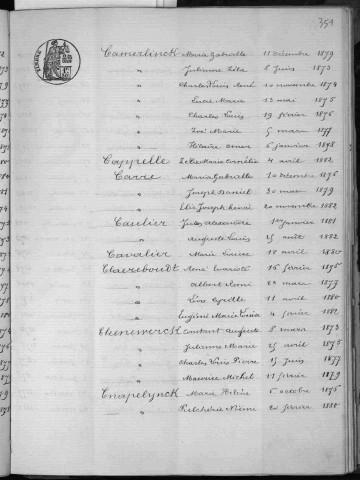 351
Camerlinck Marie Gabrielle 11 décembre 1879
" Julienne Zélia 8 juin 1873
" Charles Louis René 10 novembre 1874
" Lucie Marie 13 mai 1875
" Charles Louis 19 février 1876
" Zoé Marie 5 mars 1877
" Hilaire Omer 6 janvier 1878
Cappelle Marie Cornélie 4 avril 1882
Carre Marie Gabrielle 10 décembre 1876
" Joseph Daniel 30 mai 1879
" Elie Joseph Henri 20 novembre 1882
Caulier Jules Alexandre 1er janvier 1881
" Auguste Louis 25 août 1882
Cavalier Marie Louise 18 avril 1880
Claezeboudt René Evariste 16 février 1875
" Albert Remi 22 mars 1877
" Cyrille 11 avril 1880
" Eugénie Marie Louisa 4 février 1882
Constant Auguste 8 mars 1873
" Julienne Marie 25 avril 1875
" Charles Louis Pierre 15 juin 1877
" Maurice Michel 11 février 1879
Cnapelynck Marie Hélène 6 octobre 1875
" Pulchérie 20 février 1881